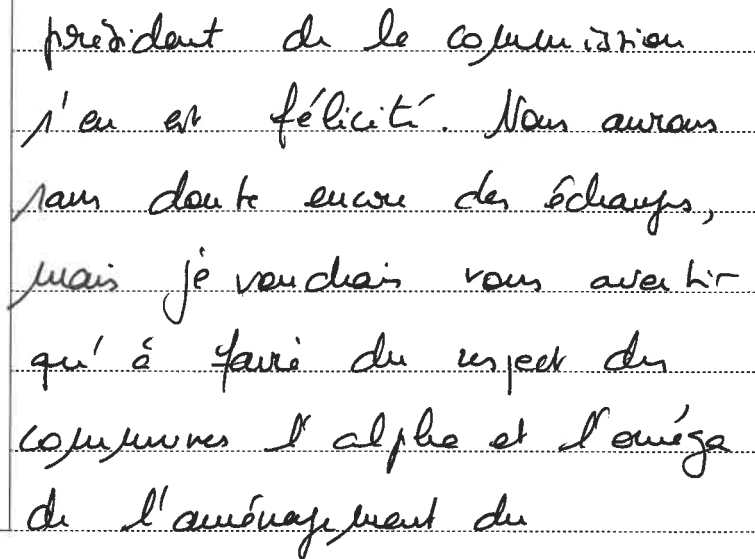 président de la commission
s'en est félicité. Nous aurons
sans doute encore des échanges,
mais je voudrais vous avertir
qu'à faire du respect des
communes l'alpha et l'oméga
de l'aménagement du